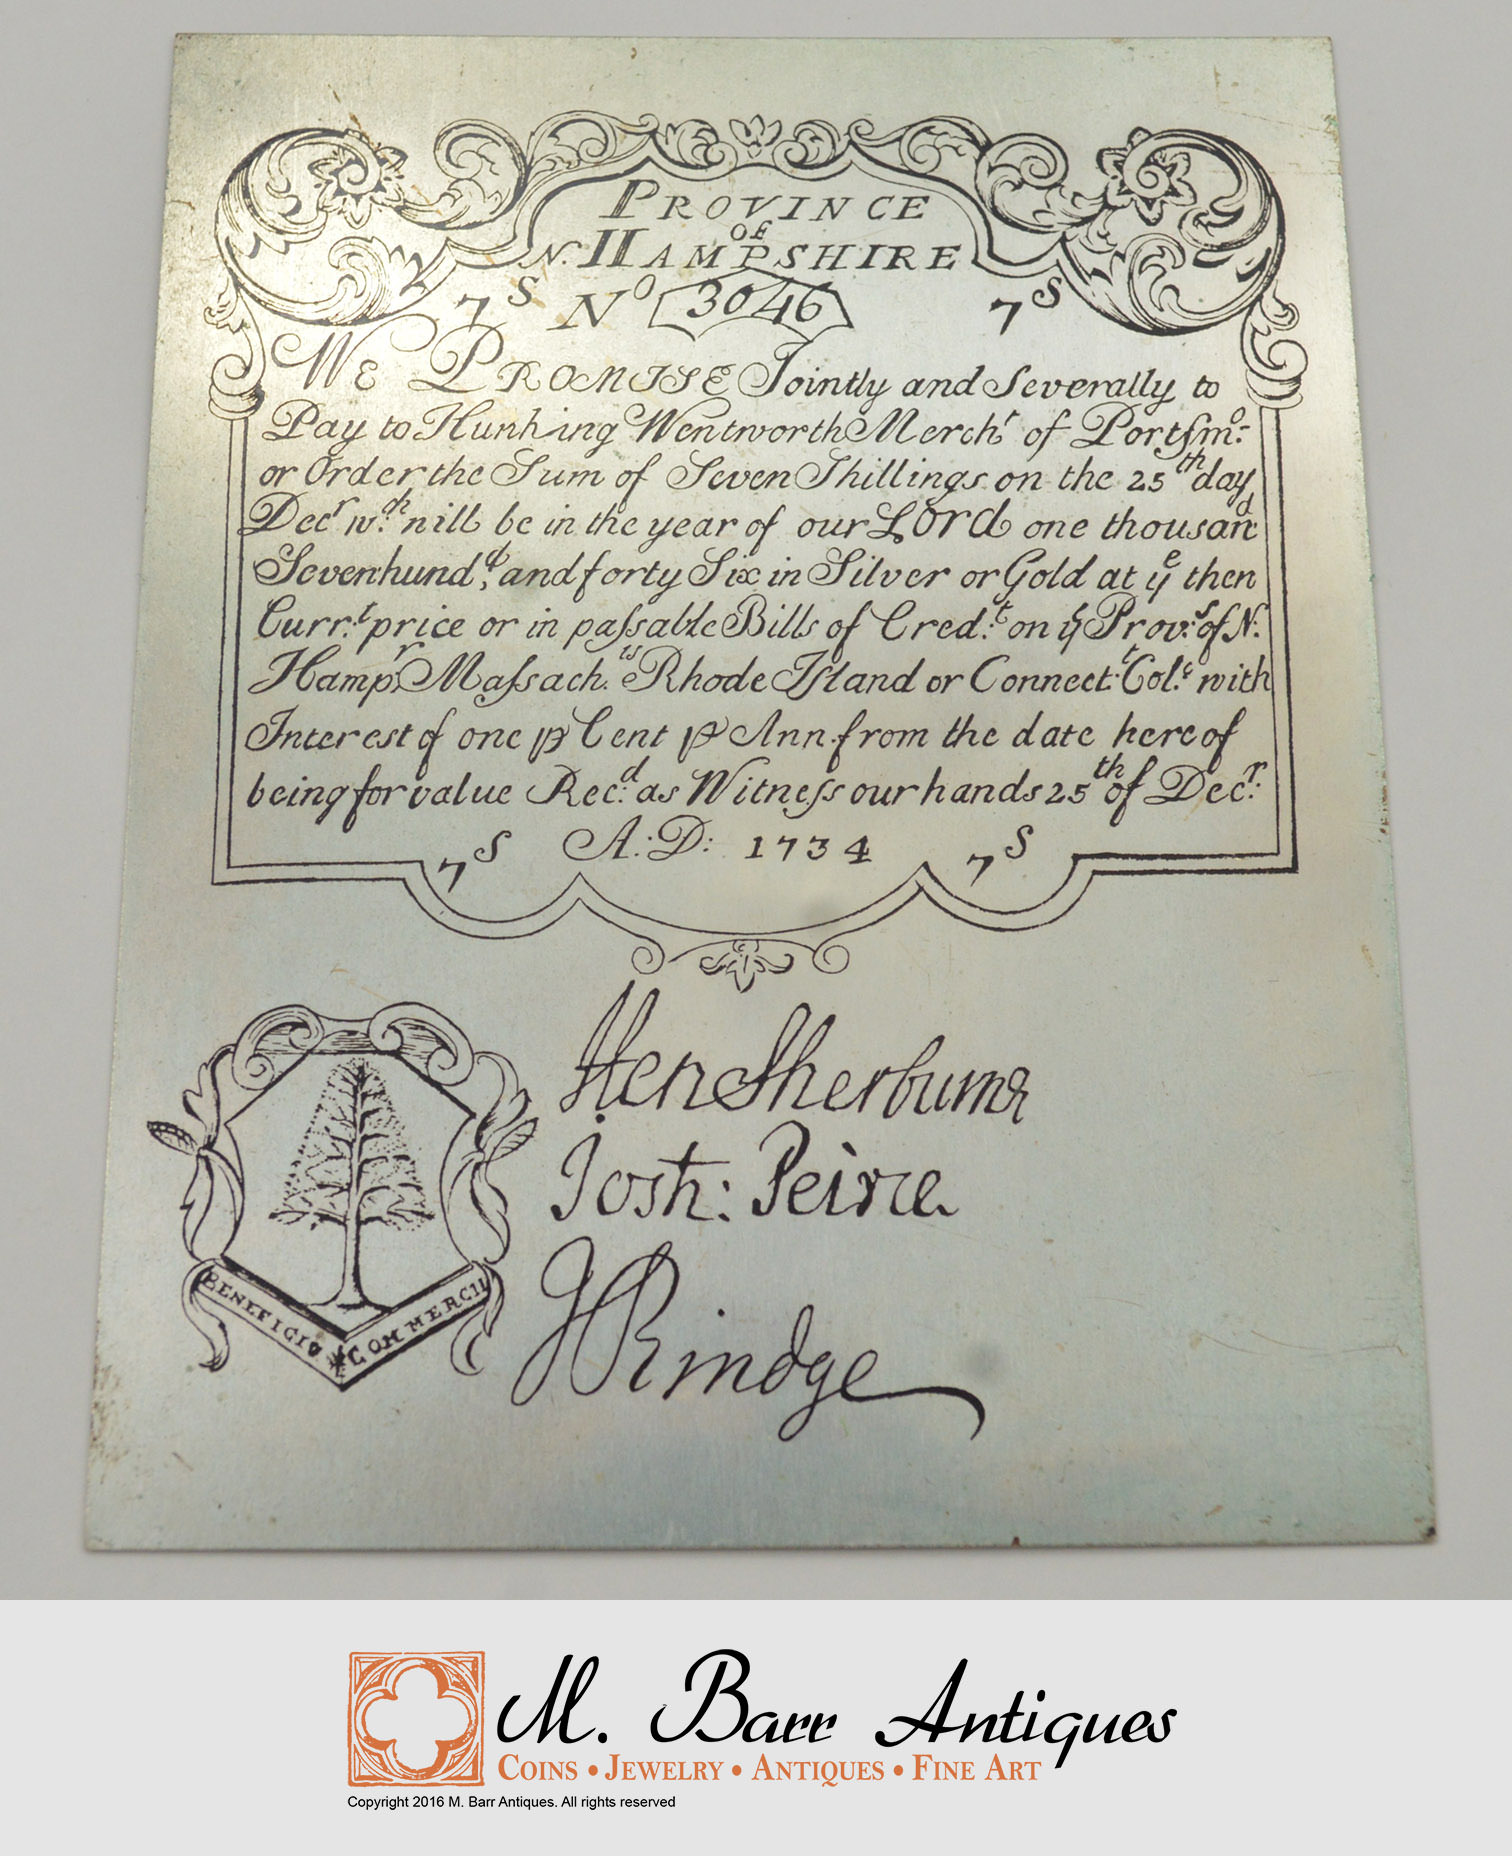 PROVINCE
OF
N. HAMPSHIRE
7S No 3046 7S
WE PROMISE Jointly and Severally to
Pay to Hunking Wentworth Merchr of Portſmo:
or Order the Sum of Seven Shillings on the 25th day
Decr wch. will be in the year of our Lord one thousand
Sevenhundd, and forty Six in Silver or Gold at ye then
Curr:t price or in paſsable Bills of Cred:t on ye Prov:s of N:
Hampr, Maſsach:ts Rhode Iſland or Connect:t Col:s with
Interest of one ⅌ Cent ⅌ Ann from the date hereof
being for value Rec:d as Witneſs our hands 25th of Decr:
7S A:D: 1734 7S
Hen Sherburne
Josh: Peirce
J Rindge
BENEFICIO COMMERCII
M. Barr Antiques
COINS • JEWELRY • ANTIQUES • FINE ART
Copyright 2016 M. Barr Antiques. All rights reserved